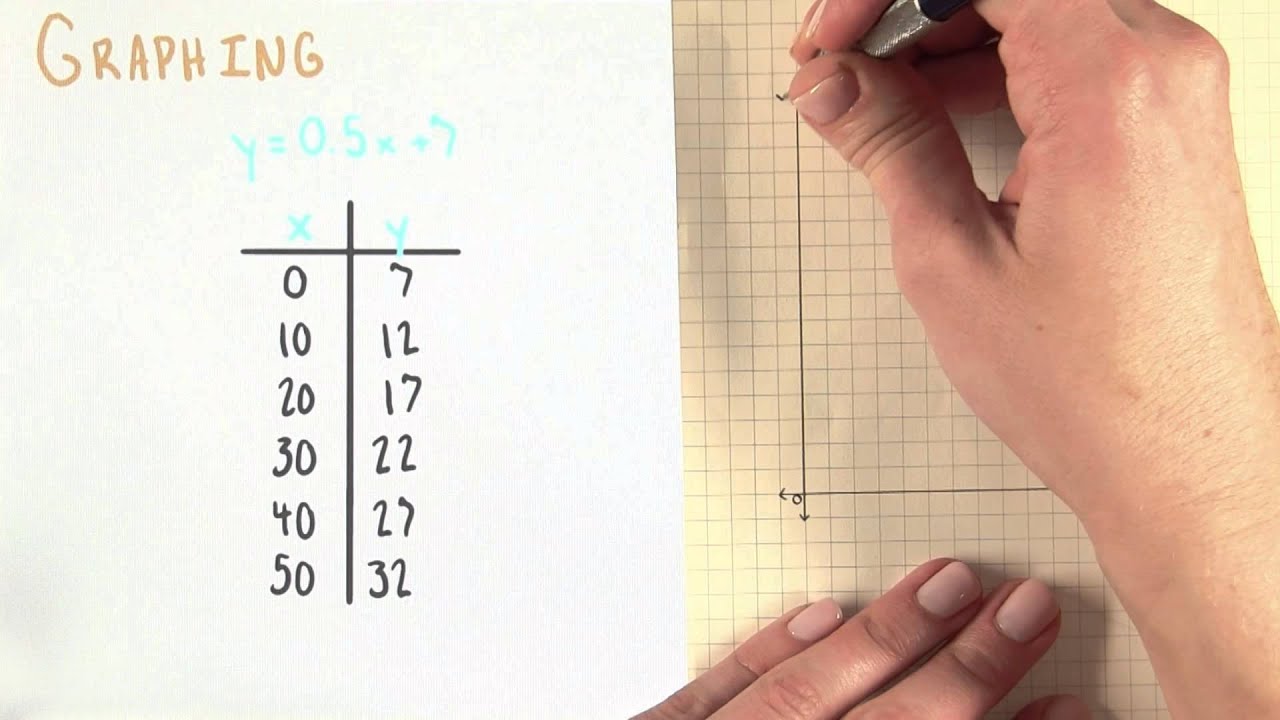 GRAPHING
y = 0.5x + 7
x y
0 7
10 12
20 17
30 22
40 27
50 32
0